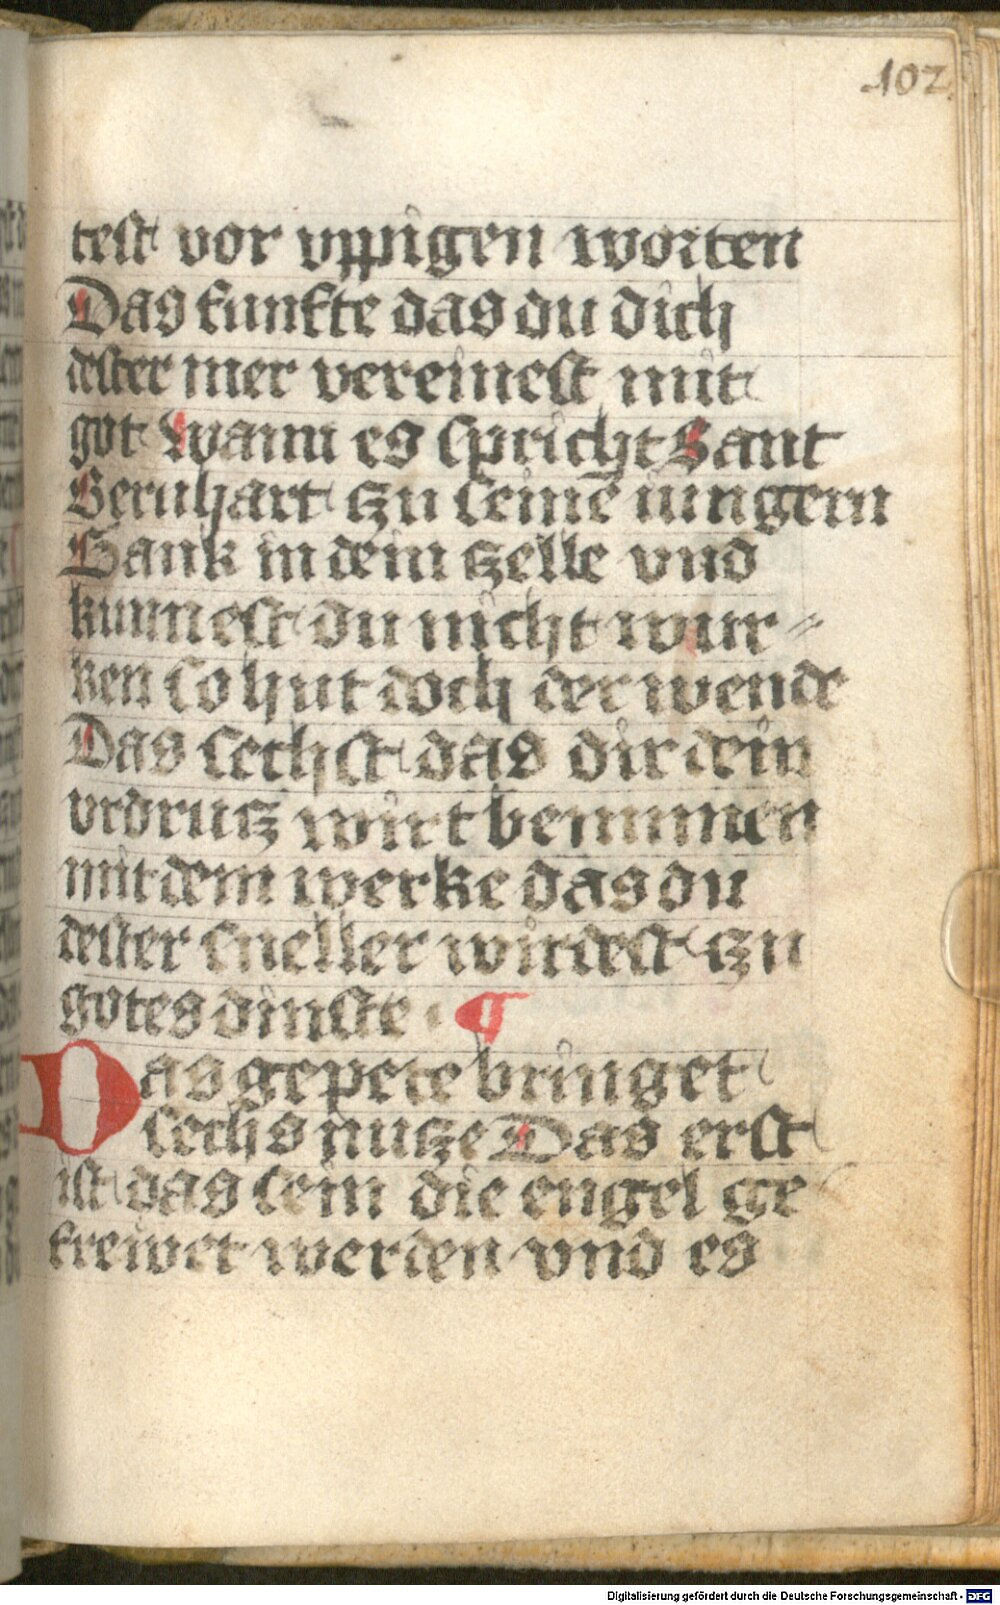 102
test vor vppigen worten
Das funfte das du dich
dester mer vereinest mit
got Wann es spricht Sant
Bernhart zu seinē iungern
Gank in dein zelle vnd
kunnest du nicht wur⸗
ken so hut doch der wende
Das sechst das dir dein
vrdrucz wirt benummen
mit dem werke das du
dester sneller wirdest zu
gotes dinste · ¶
Das gepete bringet
sechs nutze Das erst
ist das sein die engel ge
frewet werden vnd es
Digitalisierung gefördert durch die Deutsche Forschungsgemeinschaft - DFG